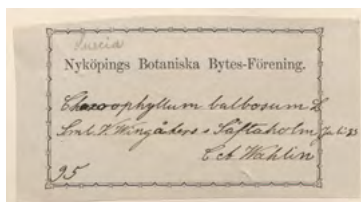 Suecia
Nyköpings Botaniska Bytes-Förening.
Chaerophyllum bulbosum L
Sml. V. Wingåkers s Säftaholm Juli 83
C et Wahlin
95